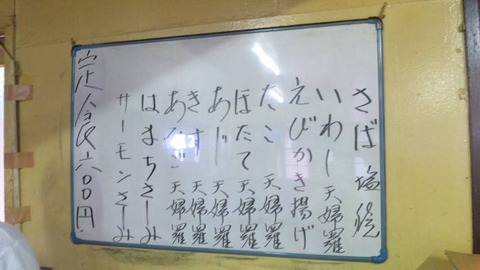 さば塩焼
いわし天婦羅
えびかき揚げ
たこ天婦羅
ほたて天婦羅
あじ天婦羅
きす天婦羅
あなご天婦羅
はまちさしみ
サーモンさしみ
定食六〇〇円